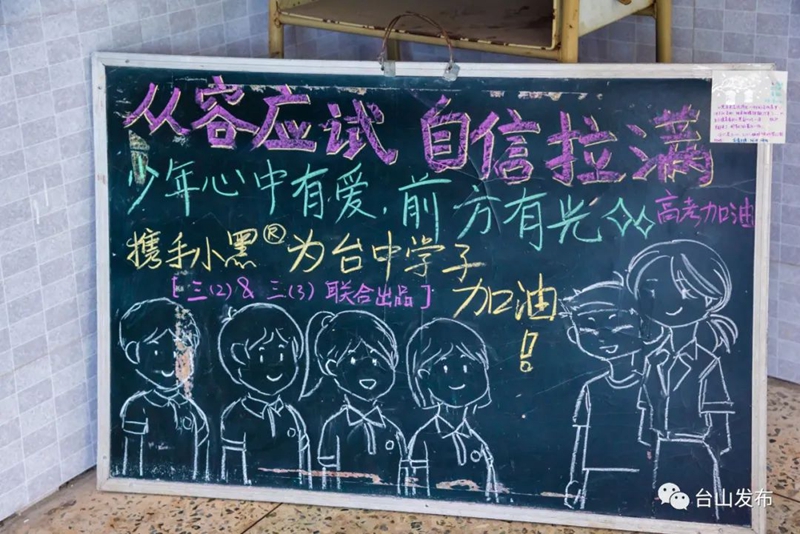 从容应试 自信拉满
少年心中有爱，前方有光
高考加油
携手小黑® 为台中学子
加油！
[三(2)& 三(3) 联合出品]
台山发布